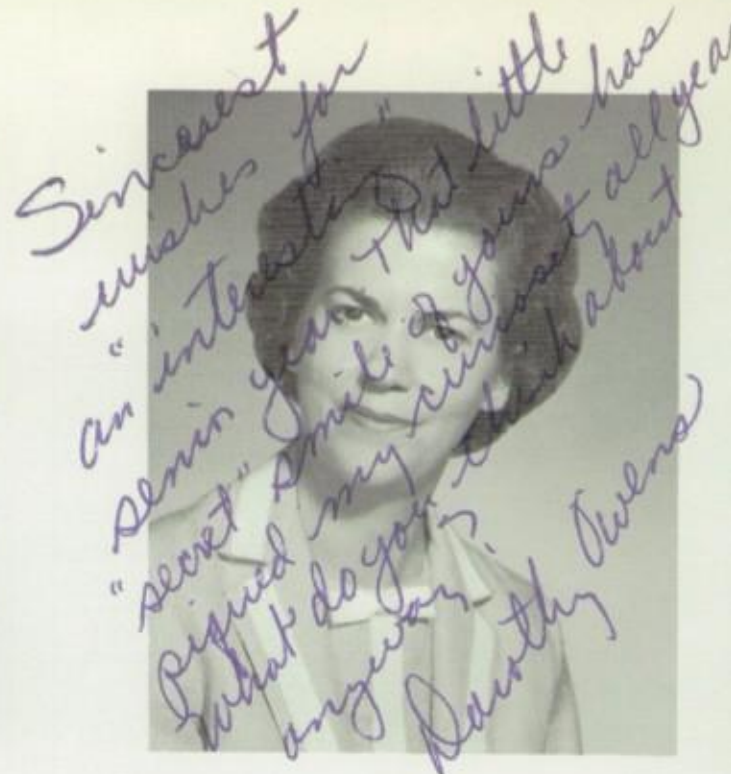 Sincerest
wishes for
an "interesting"
senior year. That little
"secret" smile of yours has
piqued my curiosity all year
What do you think about
anyway?
Dorothy Owens